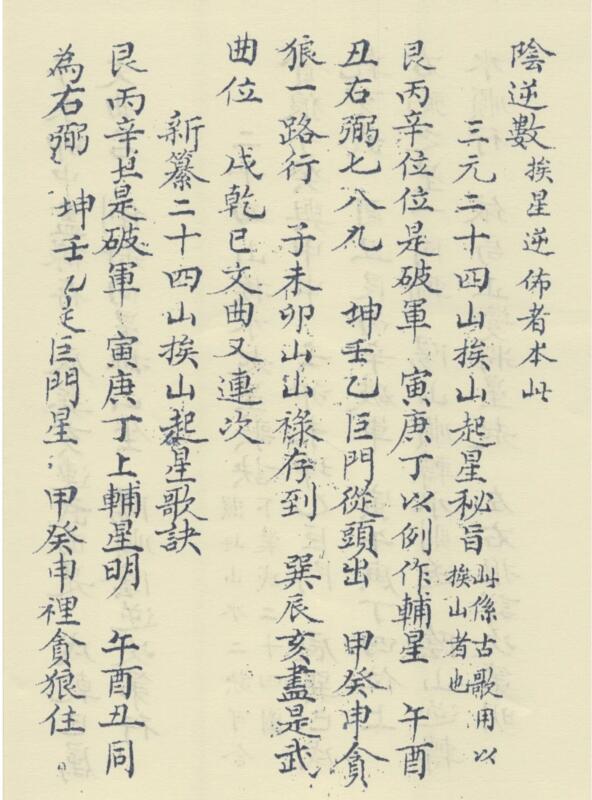 陰逆數 挨星逆佈者本此
三元二十四山挨山起星秘旨 此係古歌用以挨山者也
艮丙辛位位是破軍 寅庚丁以例作輔星 午酉
丑右弼七八九 坤壬乙巨門從頭出 甲癸申貪
狼一路行 子未卯山山祿存到 巽辰亥盡是武
曲位 戌乾巳文曲又連次
新纂二十四山挨山起星歌訣
艮丙辛是破軍 寅庚丁上輔星明 午酉丑同
為右弼 坤壬乙是巨門星 甲癸申裡貪狼住